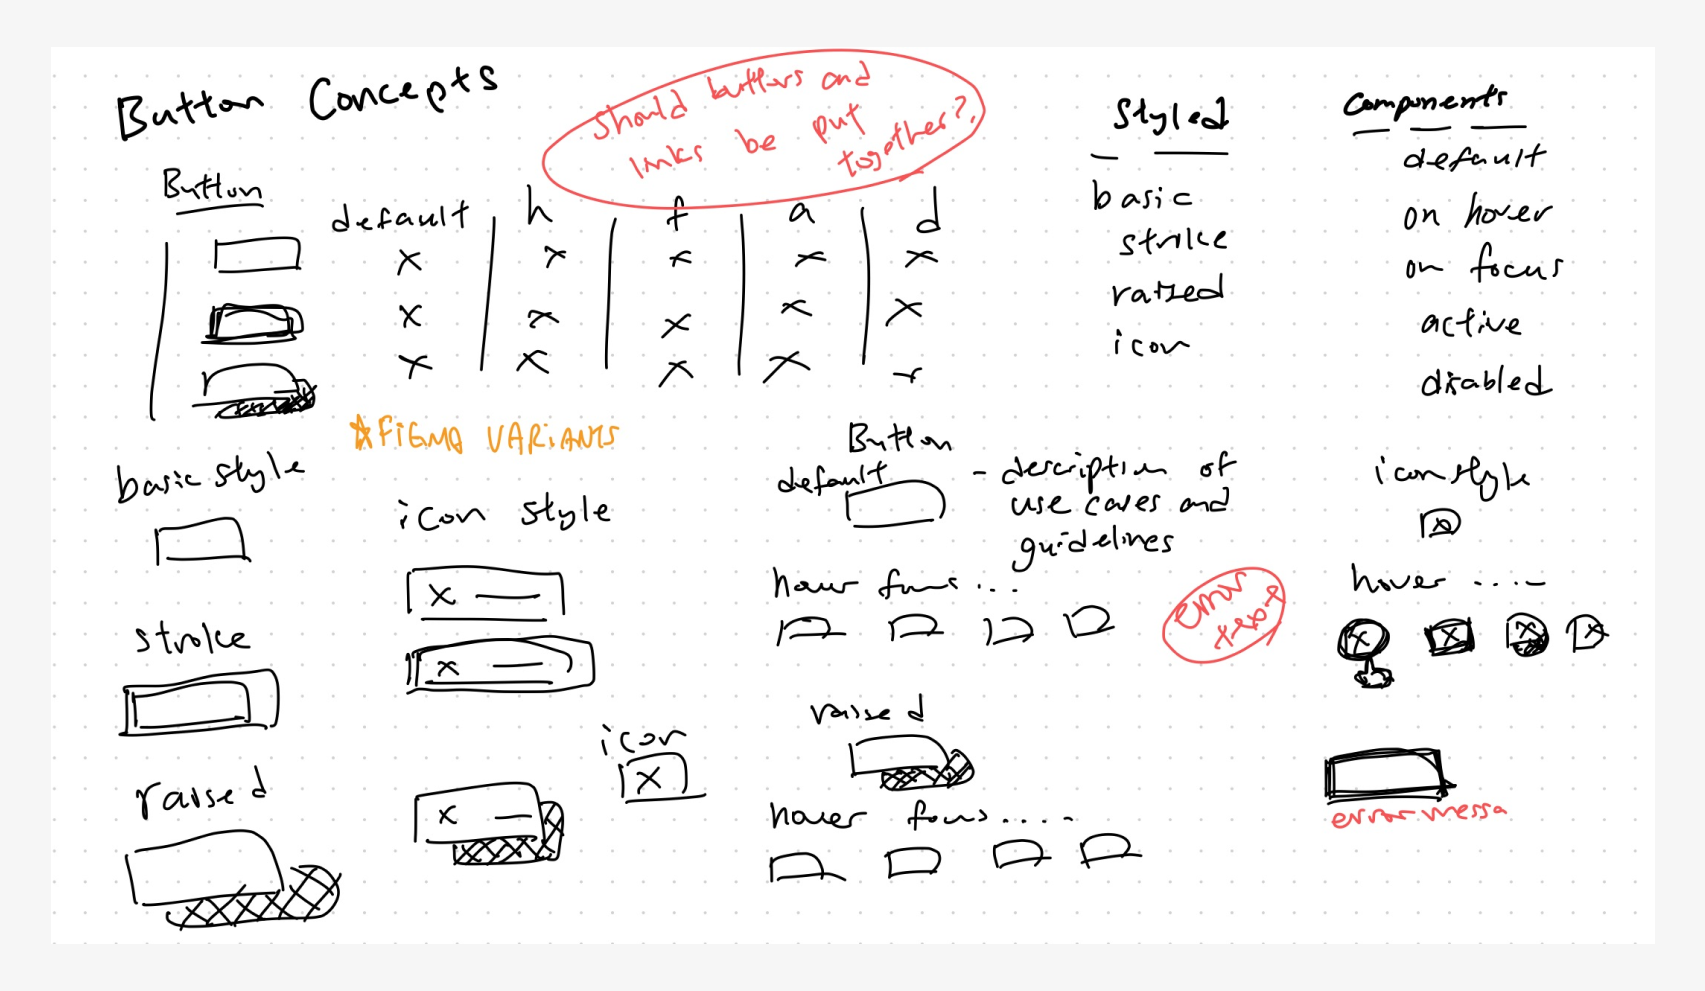 Button Concepts
Should buttons and
links be put
together?
Button
default h f a d
x x x x x
x x x x x
x x x x
Styled
basic
stroke
raised
icon
Components
default
on hover
on focus
active
disabled
FIGMA VARIANTS
basic style
stroke
raised
icon style
x
x
x
icon
x
Button
default
- description of
use cases and
guidelines
hover focus ...
error
text
raised
hover focus ....
icon style
x
hover ....
x x x x
error messa